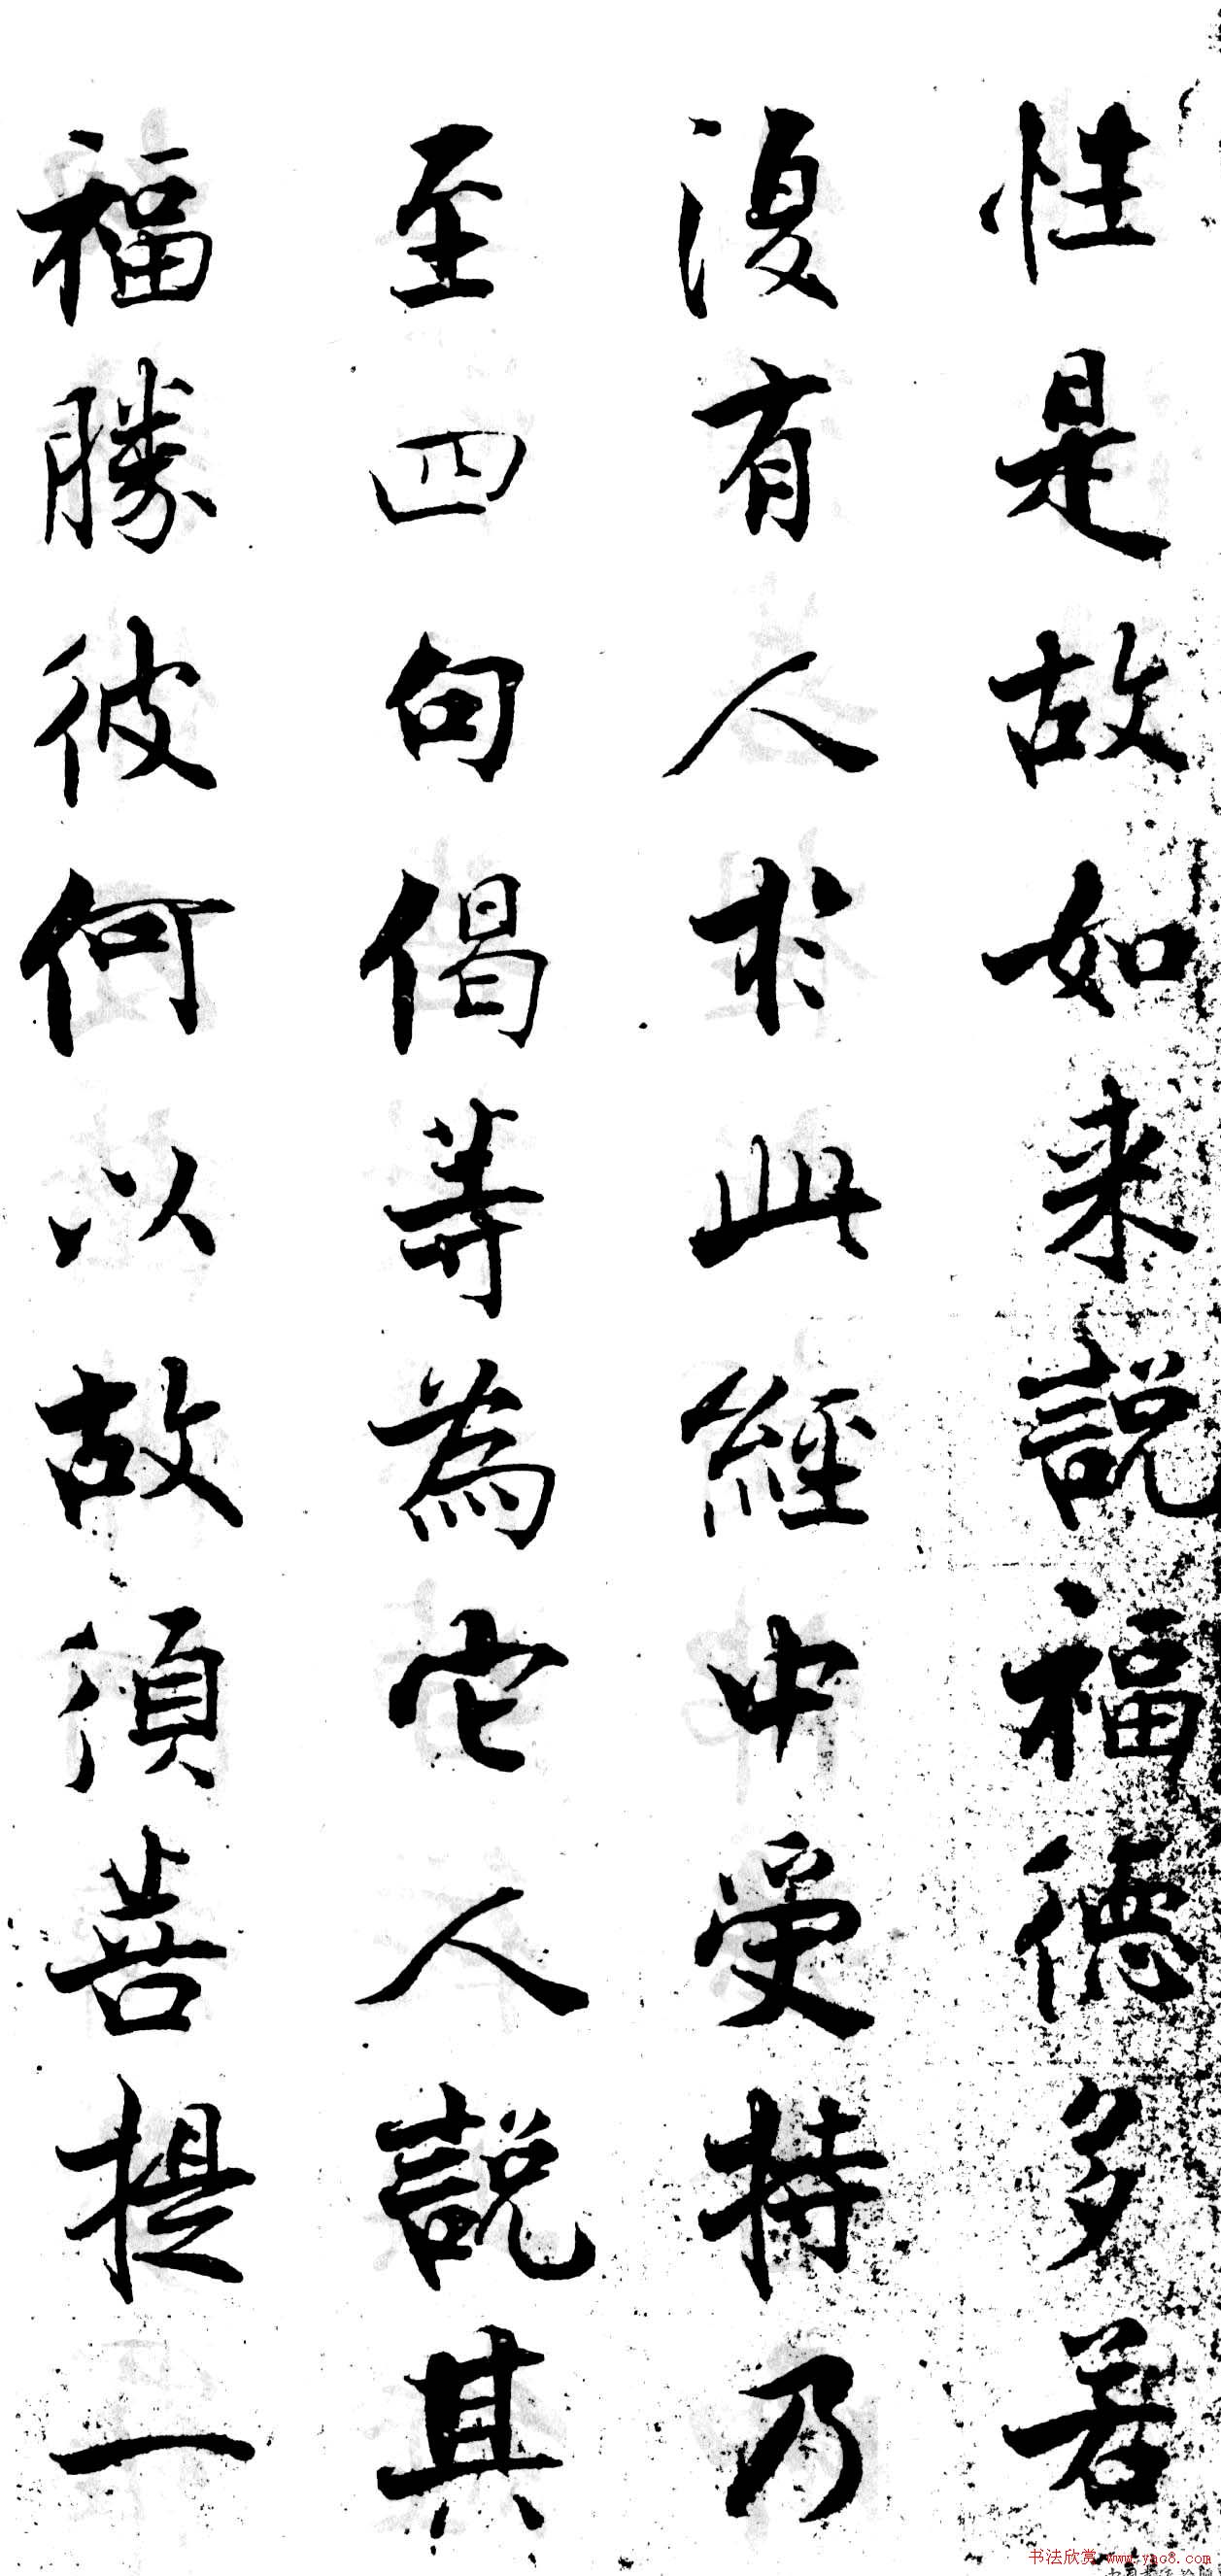 性是故如来説福徳多若
復有人於此經中受持乃
至四句偈等為它人説其
福勝彼何以故須菩提一
书法欣赏 www.yac8.com